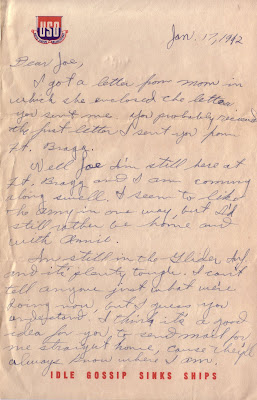 USO
Jan. 17, 1942
Dear Joe,
I got a letter from mom in
which she enclosed the letter
you sent me. you probably received
the first letter I sent you from
Ft. Bragg.
Well Joe I'm still here at
Ft. Bragg and I am coming
along swell. I seem to like
the army in one way, but I'd
still rather be home and
with Annie.
I'm still in the Glider Inf.
and it's plenty tough. I can't
tell anyone just what we're
doing now, but I guess you
understand. I think it's a good
idea for you to send mail for
me straight home, cause they'll
always know where I am.
IDLE GOSSIP SINKS SHIPS